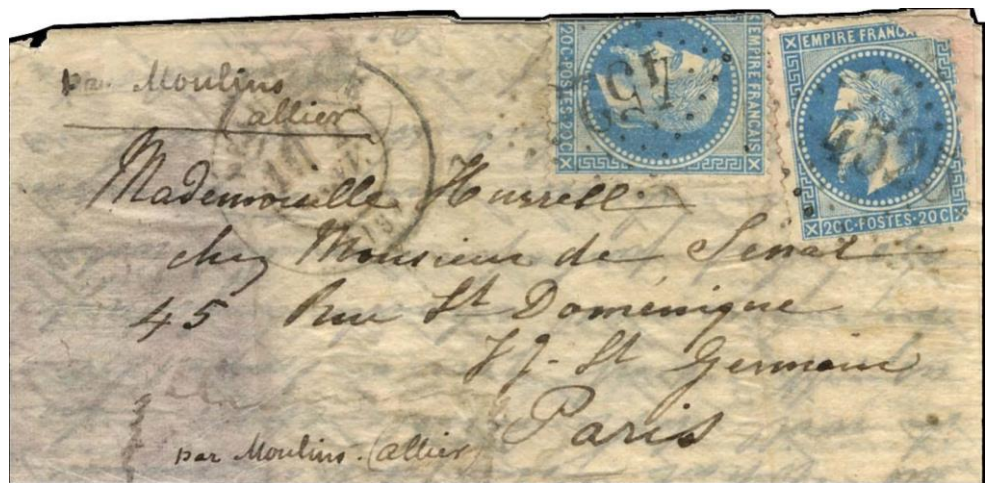 par Moulins
(allier)
EMPIRE FRANCAIS
20C·POSTES·20C
EMPIRE FRANCAIS
20C·POSTES·20C
Mademoiselle Hurrell
chez Monsieur de
45 Rue St Doménique
St Germain
Paris
par Moulins (allier)